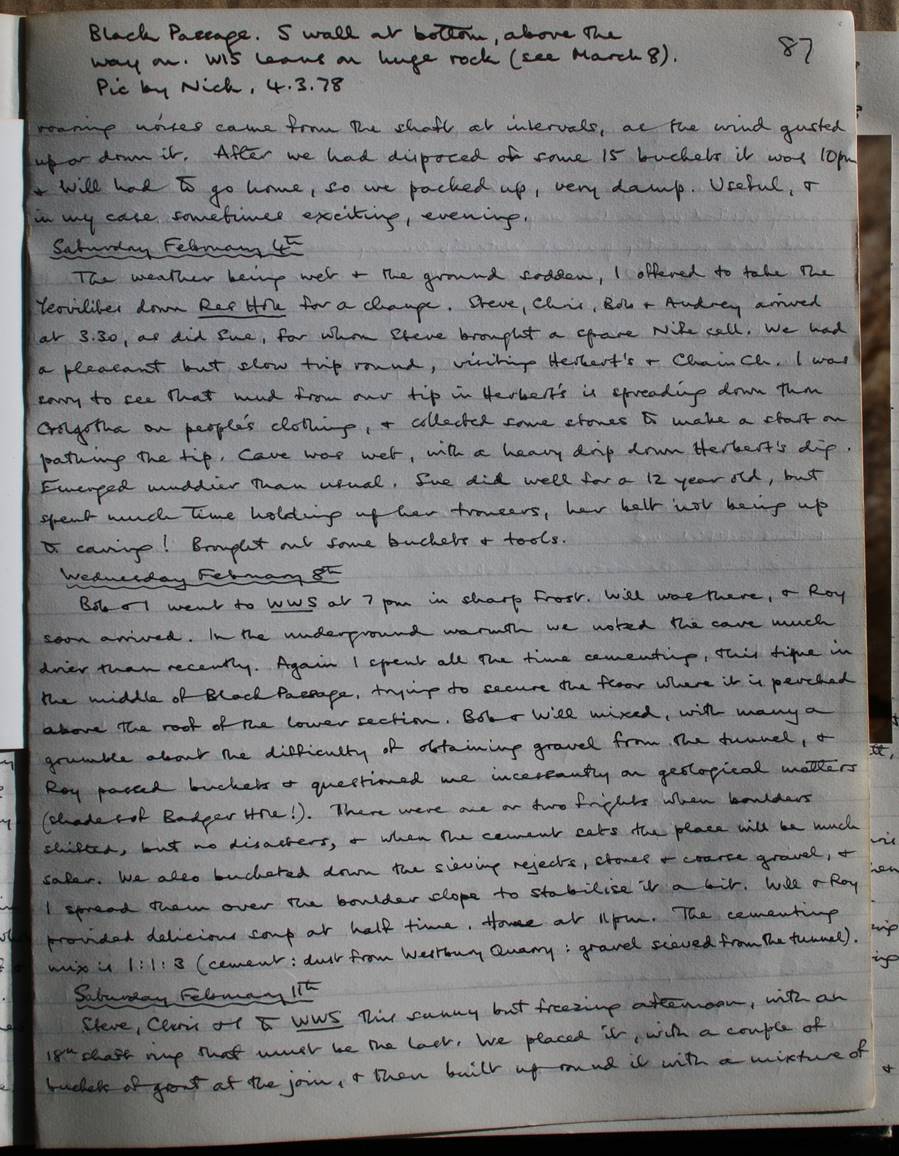 87
Black Passage. S wall at bottom, above the
way on. WIS leans on huge rock (see March 8).
Pic by Nich, 4.3.78
roaring noises came from the shaft at intervals, as the wind gusted
up or down it. After we had disposed of some 15 buckets it was 10pm
& Will had to go home, so we packed up, very damp. Useful, &
in my case sometimes exciting, evening.
Saturday February 4th
The weather being wet & the ground sodden, I offered to take the
Yeovilites down Res Hole for a change. Steve, Chris, Bob & Audrey arrived
at 3.30, as did Sue, for whom Steve brought a spare Nife cell. We had
a pleasant but slow trip round, visiting Herbert's & Chain Ch. I was
sorry to see that mud from our tip in Herbert's is spreading down thru
Golgotha on people's clothing, & collected some stones to make a start on
pathing the tip. Cave was wet, with a heavy drip down Herbert's dig.
Emerged muddier than usual. Sue did well for a 12 year old, but
spent much time holding up her trousers, her belt not being up
to caving! Brought out some buckets & tools.
Wednesday February 8th
Bob & I went to WWS at 7 pm in sharp frost. Will was there, & Roy
soon arrived. In the underground warmth we noted the cave much
drier than recently. Again I spent all the time cementing, this time in
the middle of Black Passage, trying to secure the floor where it is perched
above the roof of the lower section. Bob & Will mixed, with many a
grumble about the difficulty of obtaining gravel from the tunnel, &
Roy passed buckets & questioned me incessantly on geological matters
(shades of Badger Hole!). There were one or two frights when boulders
shifted, but no disasters, & when the cement sets the place will be much
safer. We also bucketed down the sieving rejects, stones & coarse gravel, &
I spread them over the boulder slope to stabilise it a bit. Will & Roy
provided delicious soup at half time. Home at 11pm. The cementing
mix is 1:1:3 (cement : dust from Westbury Quarry : gravel sieved from the tunnel).
Saturday February 11th
Steve, Chris & I to WWS this sunny but freezing afternoon, with an
18th shaft ring that must be the last. We placed it, with a couple of
buckets of grout at the join, & then built up round it with a mixture of